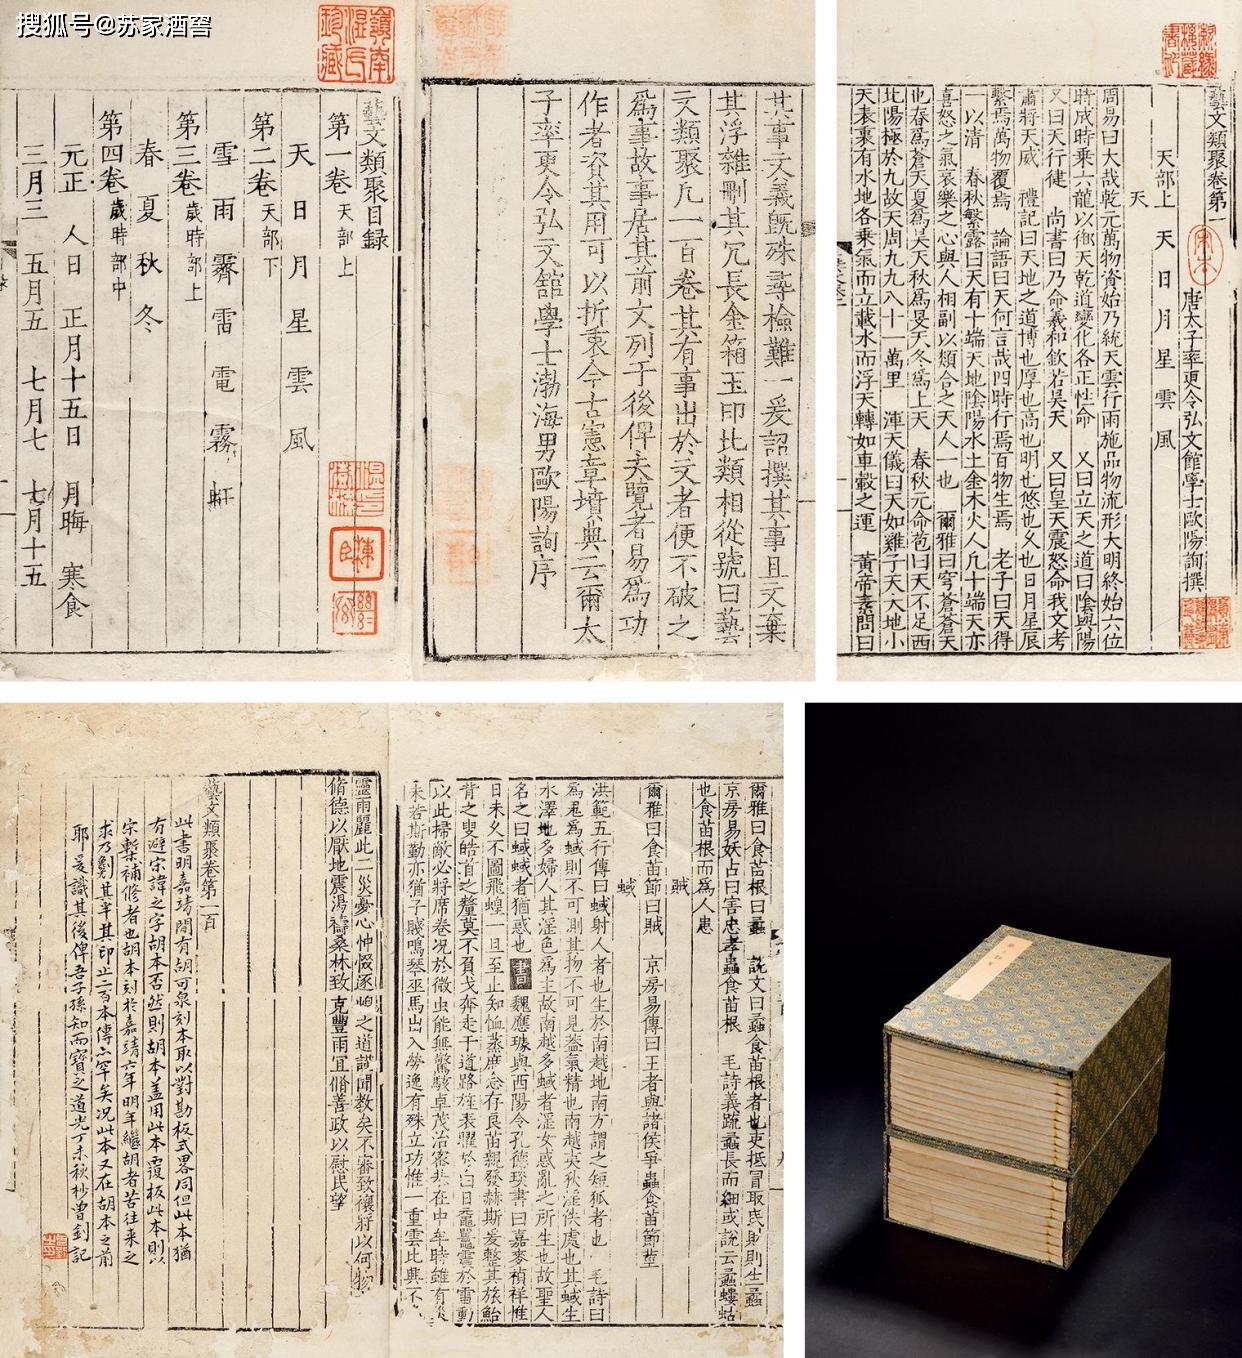 搜狐号@苏家酒窖
藝文類聚目録
第一卷 天部上
天 日 月 星 雲 風
第二卷 天部下
雪 雨 霽 雷 電 霧 虹
第三卷 歲時部上
春 夏 秋 冬
第四卷 歲時部中
元正 人日 正月十五日 月晦 寒食
三月三 五月五 七月七 七月十五
其事文義既殊尋檢難一爰詔撰其事且文棄
其浮雜刪其冗長金箱玉印比類相從號曰藝
文類聚凡一百卷其有事出於文者便不破之
爲事故事居其前文列于後俾夫覽者易爲功
作者資其用可以折衷今古憲章墳典云爾太
子率更令弘文館學士渤海男歐陽詢序
藝文類聚卷第一
宋本
唐太子率更令弘文館學士歐陽詢撰
天部上 天 日 月 星 雲 風
天
周易曰大哉乾元萬物資始乃統天雲行雨施品物流形大明終始六位
時成時乘六龍以御天乾道變化各正性命 又曰立天之道曰陰與陽
又曰天行健 尚書曰乃命羲和欽若昊天 又曰皇天震怒命我文考
肅將天威 禮記曰天地之道博也厚也高也明也悠也久也日月星辰
繫焉萬物覆焉 論語曰天何言哉四時行焉百物生焉 老子曰天得
一以清 春秋繁露曰天有十端天地陰陽水土金木火人凡十端天亦
喜怒之氣哀樂之心與人相副以類合之天人一也 爾雅曰穹蒼蒼天
也春爲蒼天夏爲昊天秋爲旻天冬爲上天 春秋元命苞曰天不足西
北陽極於九故天周九九八十一萬里 渾天儀曰天如雞子天大地小
天表裏有水地各乘氣而立載水而浮天轉如車轂之運 黃帝素問曰
爾雅曰食苗根曰蟊 説文曰蟊食苗根者也吏抵冒取民財則生蟊
京房易妖占曰害忠孝蟲食苗根 毛詩義疏蟊長而細或説云蟊螻蛄
也食苗根而爲人患
賊
爾雅曰食苗節曰賊 京房易傳曰王者與諸侯爭蟲食苗節莖
蜮
洪範五行傳曰蜮射人者也生於南越地南方謂之短狐者也 毛詩曰
爲鬼爲蜮則不可測其物不可見蓋氣精也南越夷狄淫佚處也其蜮生
水澤地多婦人其淫色爲主故南越多蜮者淫女惑亂之所生也故聖人
名之曰蜮蜮者猶惑也 書 魏應璩與西陽令孔德琰書曰嘉麥禎祥惟
日未久不圖飛蝗一旦至止知恤蒸庶念存良苗親發赫斯爰整其旅鮐
背之叟皓首之釐莫不負戈奔走于道路旌表曜於白日鼉鼉震於雷動
以此掃敵必將席卷况於微虫能無驚駭卓茂治密共在中牟時雖有災
未若斯勤亦猶子賤鳴琴巫馬出入勞逸有殊立功惟一重雲比興不
靈雨麗此二災憂心忡惙逐 之道謨聞教矣不審致禳將以何物
脩德以厭地震湯禱桑林致克豐雨宜脩善政以慰民望
藝文類聚卷第一百
此書明嘉靖間有胡可泉刻本取以對勘板式畧同但此本猶
有避宋諱之字胡本否然則胡本蓋用此本覆板此本則以
宋槧補修者也胡本刻於嘉靖六年明年繼胡者苦往來之
求乃劖其半其印止二百本傳亦罕矣况此本又在胡本之前
耶爰識其後俾吾子孫知而寶之道光丁未秋杪曾釗記